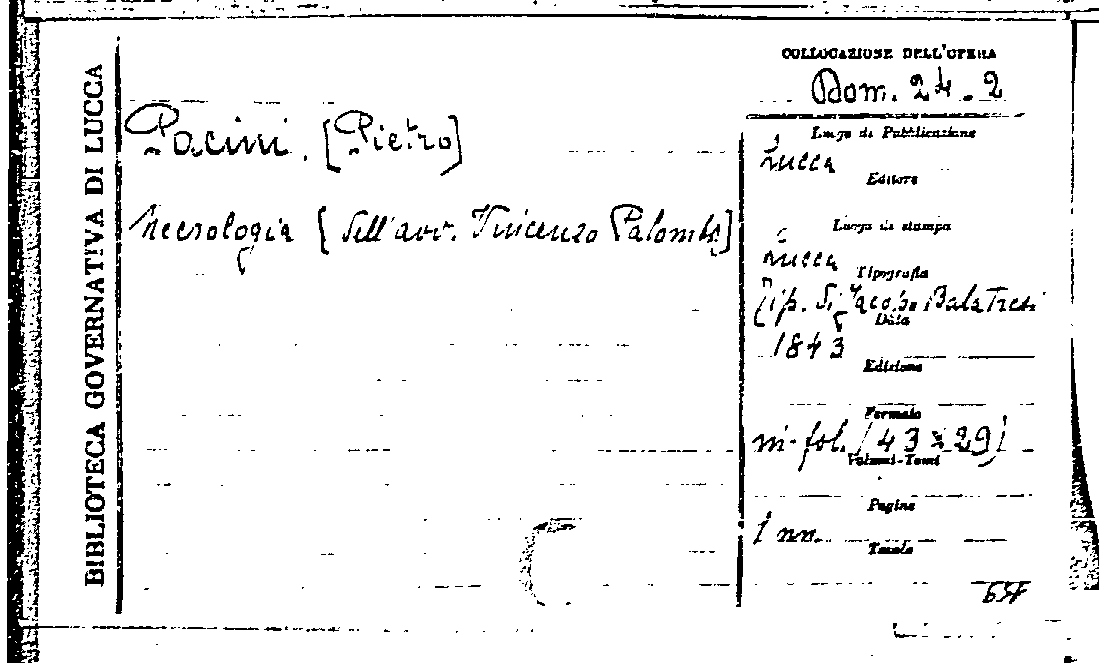 BIBLIOTECA GOVERNATIVA DI LUCCA
Pacini, [Pietro]
Necrologia [dell'avv. Vincenzo Palombi]
COLLOCAZIONE DELL'OPERA
Dom. 24.2
Luogo di Pubblicazione
Lucca
Editore
Luogo di stampa
Lucca
Tipografia
Tip. di Jacopo Balatresi
Data
1843
Edizione
Formato
in-fol. (43 x 29)
Volumi-Tomi
Pagine
1 nn.
Tavole